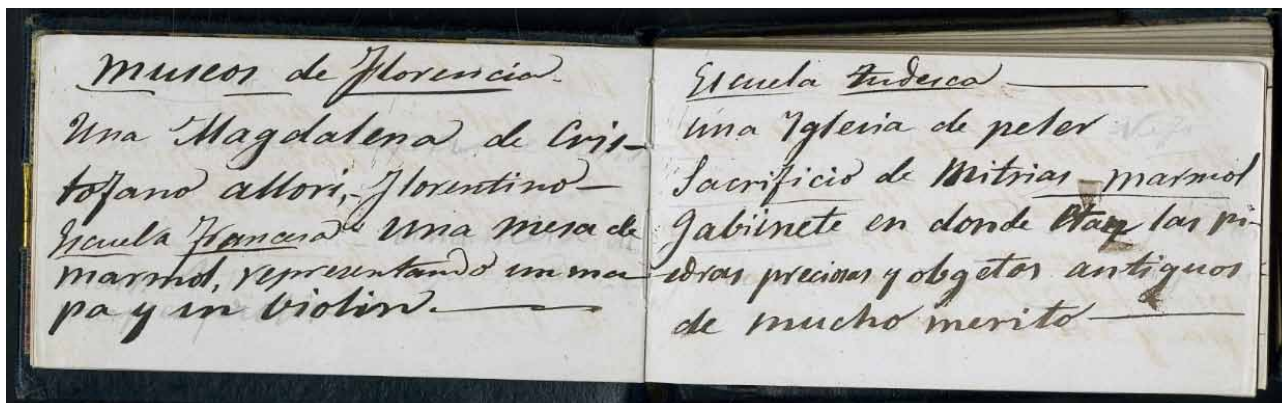 Museos de Florencia.
Una Magdalena de Cris-
tofano allori, Florentino-
Escuela Francesa Una mesa de
marmol, representando un ma-
pa y un violin.
Escuela tudesca
una Yglesia de peter
Sacrificio de Mitrias marmol
Gabiinete en donde Etan las pi-
edras preciosas y obgetos antiguos
de mucho merito